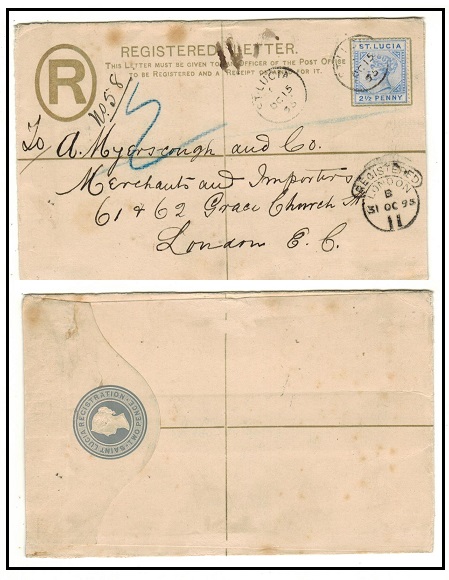 REGISTERED LETTER.
THIS LETTER MUST BE GIVEN TO AN OFFICER OF THE POST OFFICE
TO BE REGISTERED AND A RECEIPT OBTAINED FOR IT.
R
ST. LUCIA
2½ PENNY
ST. LUCIA
OC 15
95
OC 15
95
No. 58
To A. Myerscough and Co.
Merchants and Importers
61 & 62 Grace Church St
London E.C.
REGISTERED
LONDON
B
31 OC 95
11
SAINT LUCIA REGISTRATION TWO PENCE